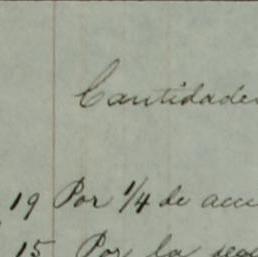 Cantidades
19 Por 1/4 de
15 Por la